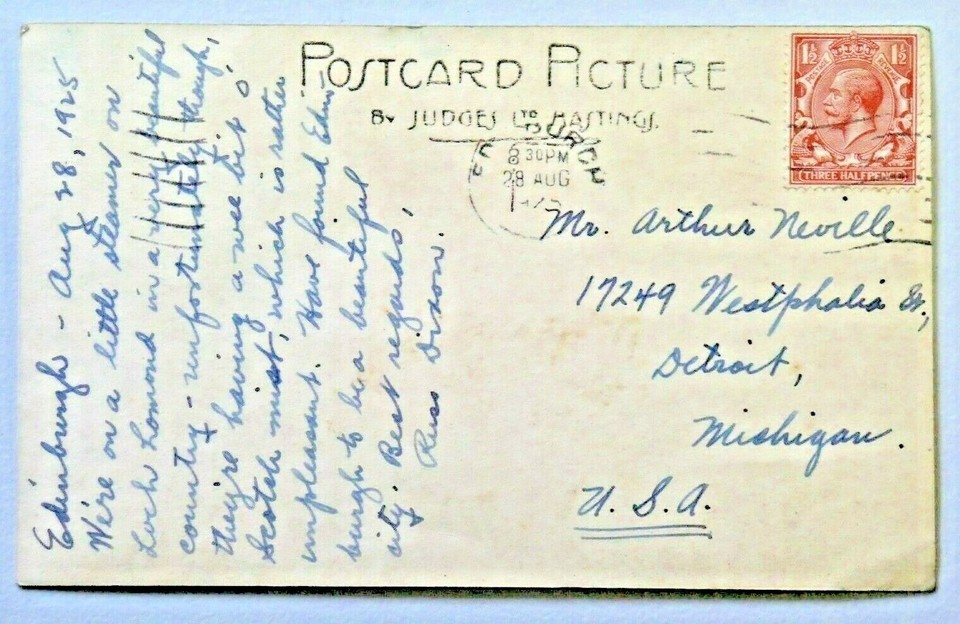 POSTCARD PICTURE
BY JUDGES LTD HASTINGS.
1½ 1½
POSTAGE REVENUE
THREE HALFPENCE
EDINBURGH
8 30PM
28 AUG
1925
Edinburgh - Aug 28, 1925
We're on a little steamer on
Loch Lomond in a very beautiful
country - unfortunately, though,
they're having a wee bit o'
Scotch mist, which is rather
unpleasant. Have found Edin-
burgh to be a beautiful
city. Best regards,
Russ Dixon.
Mr. Arthur Neville
17249 Westphalia St,
Detroit,
Michigan.
U. S. A.